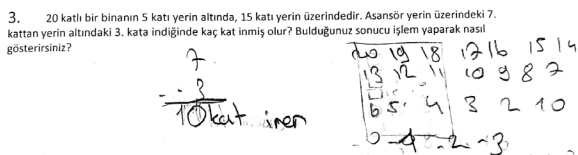 3. 20 katlı bir binanın 5 katı yerin altında, 15 katı yerin üzerindedir. Asansör yerin üzerindeki 7.
kattan yerin altındaki 3. kata indiğinde kaç kat inmiş olur? Bulduğunuz sonucu işlem yaparak nasıl
gösterirsiniz?
7
- - 3
10 kat iner
20 19 18 17 16 15 14
13 12 11 10 9 8 7
6 5 4 3 2 10
0 -1 -2 -3